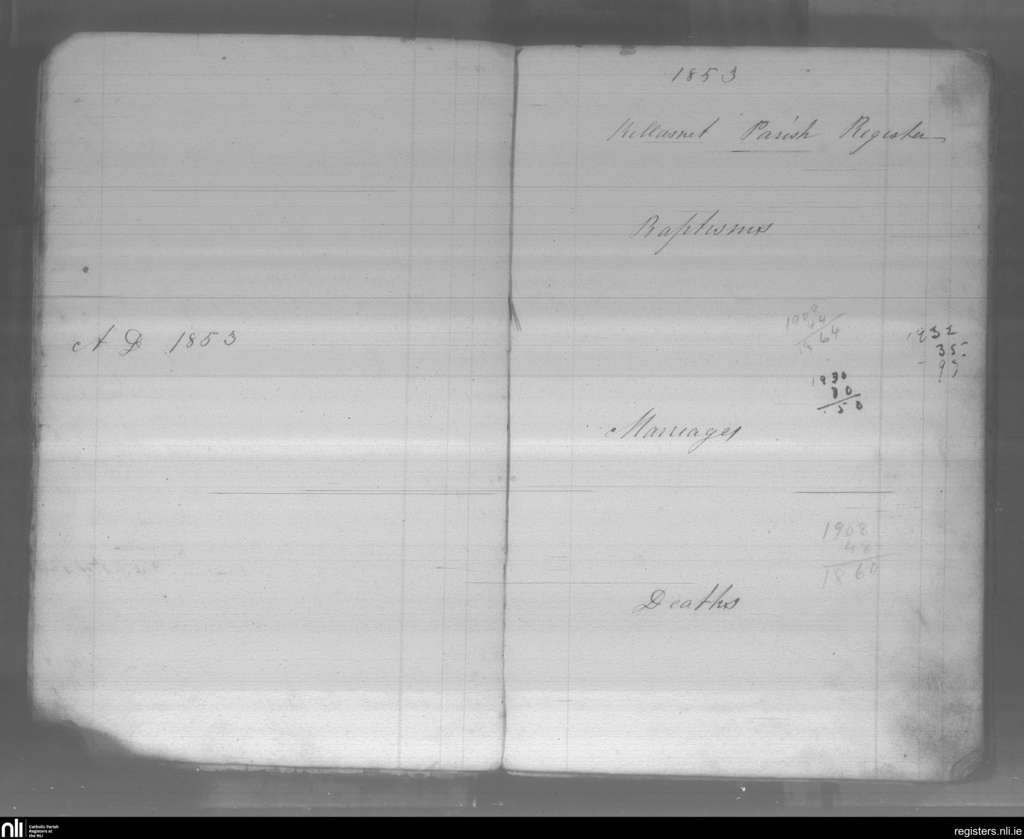 A D 1853
1853
Killasnet Parish Register
Baptisms
1908
44
1864
1932
35
97
1930
80
50
Marriages
1908
48
1860
Deaths
nli
Catholic Parish
Registers at
the NLI
registers.nli.ie